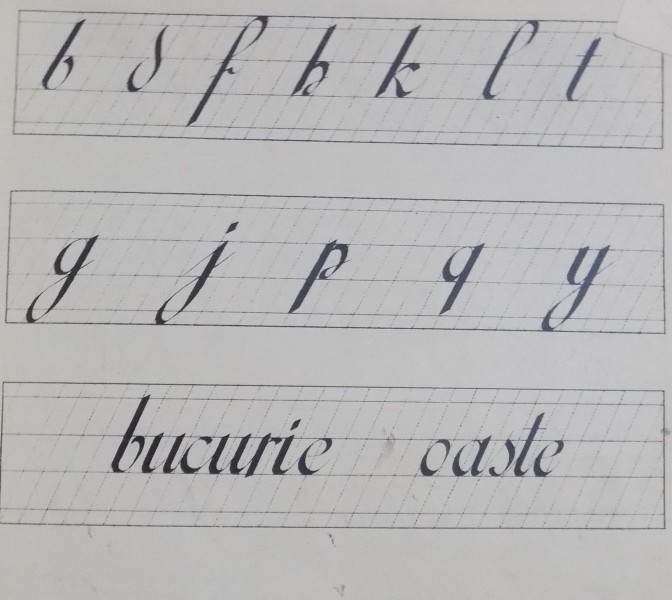 b d f h k l t
g j p q y
bucurie oaste